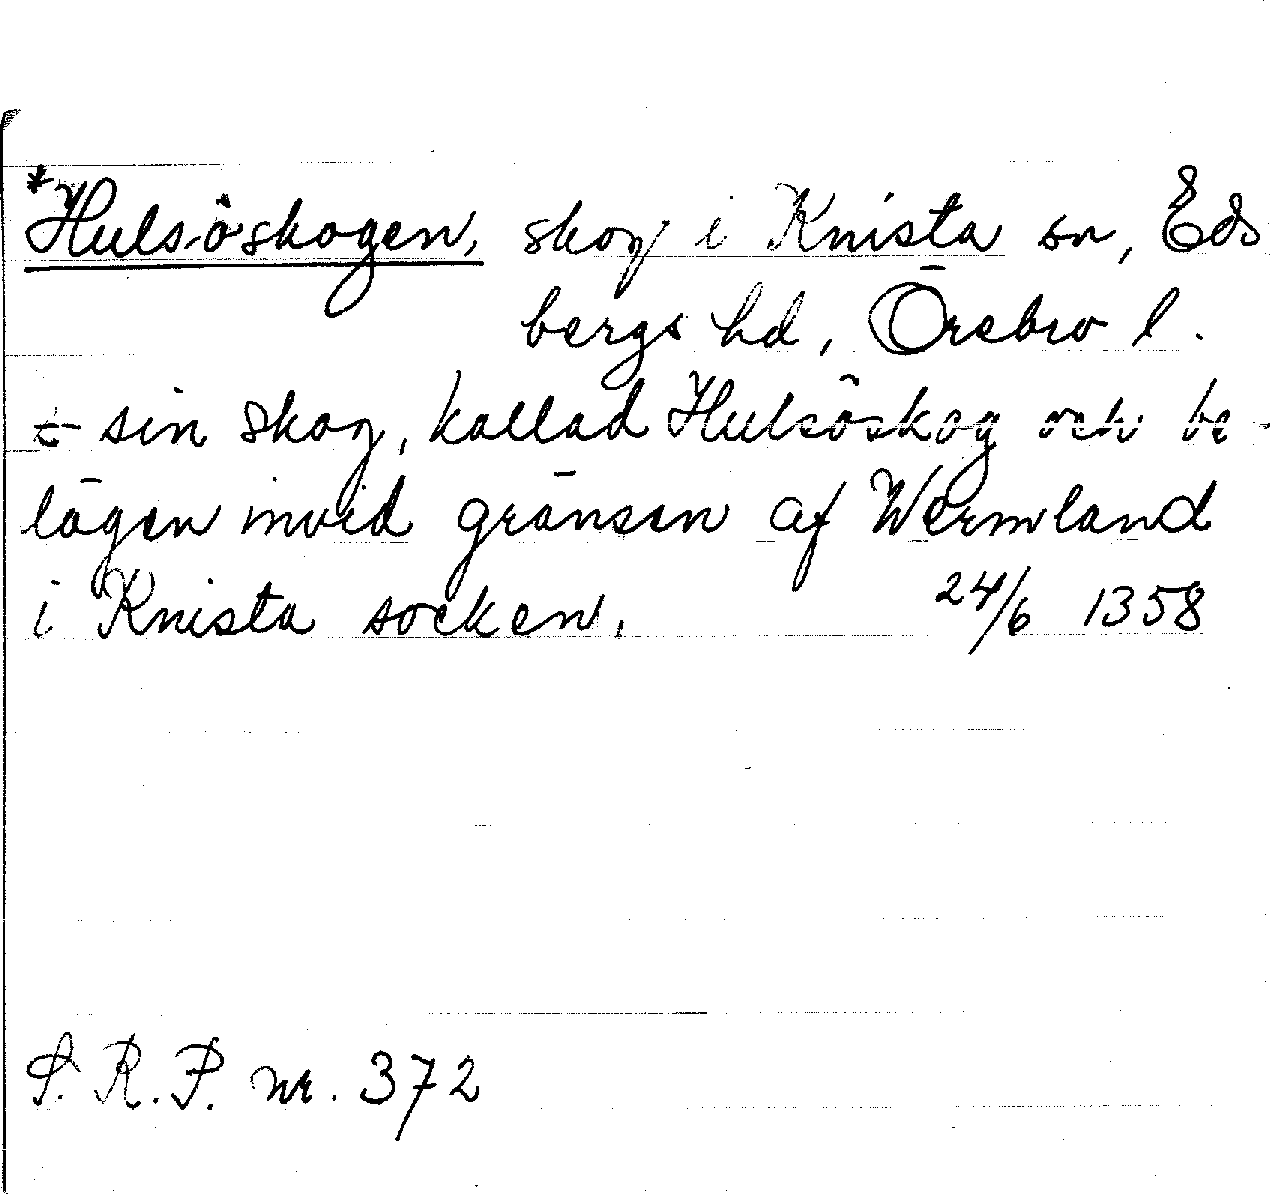 *Hulsöskogen, skog i Knista sn, Eds
bergs hd, Örebro l.
÷ sin skog, kallad Hulsöskog och be-
lägen invid gränsen af Wermland
i Knista socken. 24/6 1358
S. R. P. nr. 372